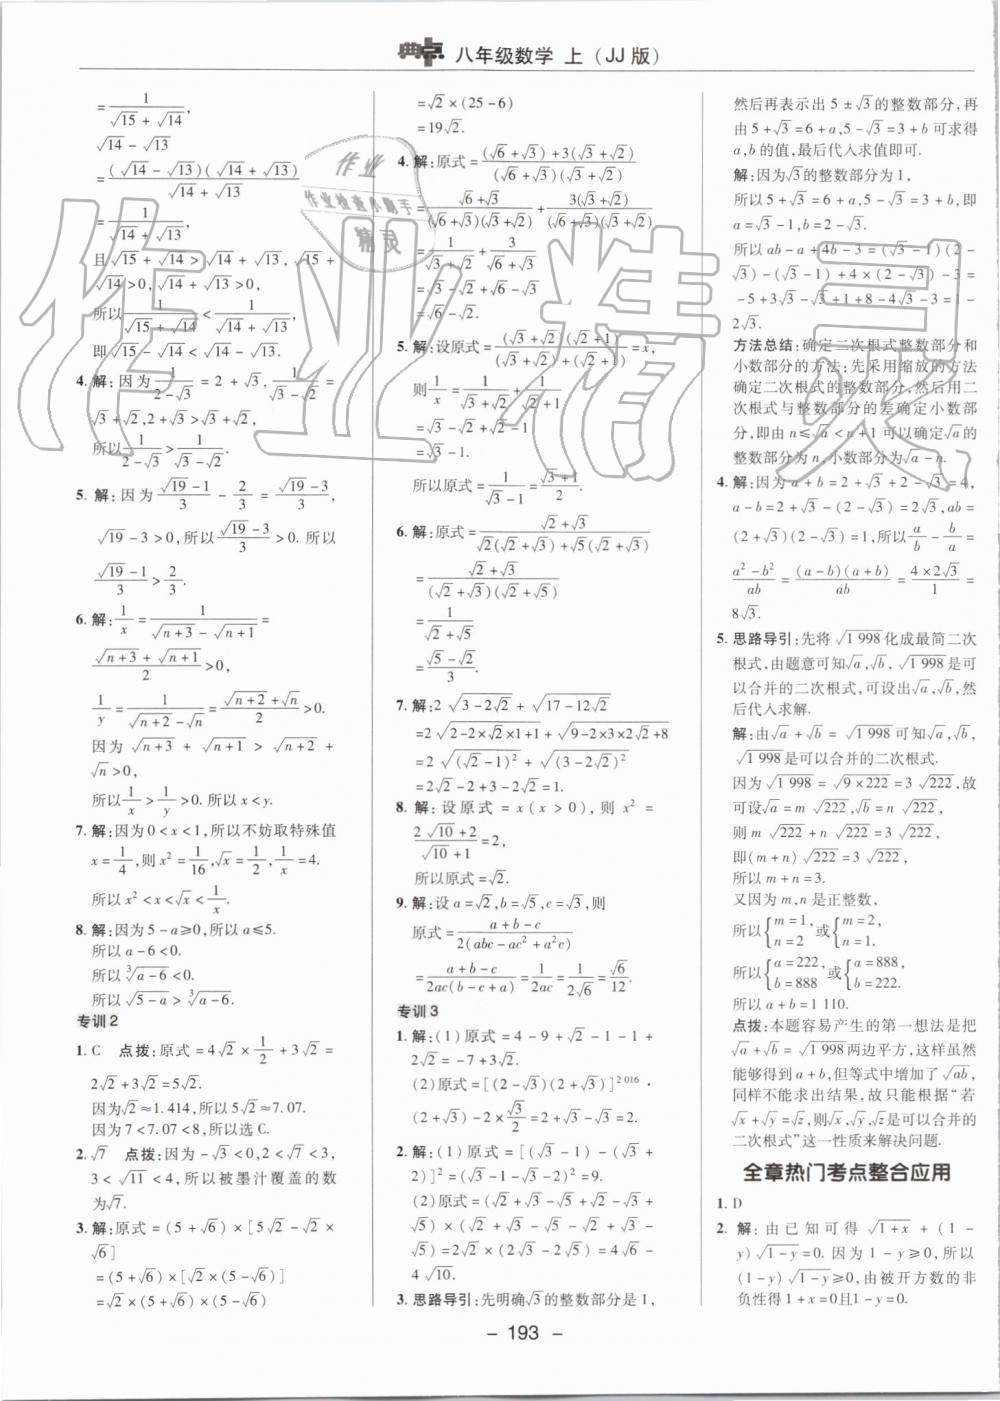 典点 八年级数学 上（JJ版）
=1/(√15+√14),
√14-√13
=(√14-√13)(√14+√13)/(√14+√13)
=1/(√14+√13),
且√15+√14>√14+√13,√15+
√14>0,√14+√13>0,
所以1/(√15+√14)<1/(√14+√13),
即√15-√14<√14-√13.
4.解:因为1/(2-√3)=2+√3,1/(√3-√2)=
√3+√2,2+√3>√3+√2,
所以1/(2-√3)>1/(√3-√2).
5.解:因为(√19-1)/3-2/3=(√19-3)/3,
√19-3>0,所以(√19-3)/3>0.所以
(√19-1)/3>2/3.
6.解:1/x=1/(√(n+3)-√(n+1))=
(√(n+3)+√(n+1))/2>0,
1/y=1/(√(n+2)-√n)=(√(n+2)+√n)/2>0.
因为√(n+3)+√(n+1)>√(n+2)+
√n>0,
所以1/x>1/y>0.所以x<y.
7.解:因为0<x<1,所以不妨取特殊值
x=1/4,则x²=1/16,√x=1/2,1/x=4.
所以x²<x<√x<1/x.
8.解:因为5-a≥0,所以a≤5.
所以a-6<0.
所以∛(a-6)<0.
所以√(5-a)>∛(a-6).
专训2
1.C 点拨:原式=4√2×1/2+3√2=
2√2+3√2=5√2.
因为√2≈1.414,所以5√2≈7.07.
因为7<7.07<8,所以选C.
2.√7 点拨:因为-√3<0,2<√7<3,
3<√11<4,所以被墨汁覆盖的数
为√7.
3.解:原式=(5+√6)×[5√2-√2×
√6]
=(5+√6)×[√2×(5-√6)]
=√2×(5+√6)×(5-√6)
=√2×(25-6)
=19√2.
4.解:原式=((√6+√3)+3(√3+√2))/((√6+√3)(√3+√2))
=(√6+√3)/((√6+√3)(√3+√2))+3(√3+√2)/((√6+√3)(√3+√2))
=1/(√3+√2)+3/(√6+√3)
=√3-√2+√6-√3
=√6-√2.
5.解:设原式=(√3+√2)(√2+1)/((√3+√2)+(√2+1))=x,
则1/x=1/(√3+√2)+1/(√2+1)
=√3-√2+√2-1
=√3-1.
所以原式=1/(√3-1)=(√3+1)/2.
6.解:原式=(√2+√3)/(√2(√2+√3)+√5(√2+√3))
=(√2+√3)/((√2+√3)(√2+√5))
=1/(√2+√5)
=(√5-√2)/3.
7.解:2√(3-2√2)+√(17-12√2)
=2√(2-2×√2×1+1)+√(9-2×3×2√2+8)
=2√((√2-1)²)+√((3-2√2)²)
=2√2-2+3-2√2=1.
8.解:设原式=x(x>0),则x²=
(2√10+2)/(√10+1)=2,
所以原式=√2.
9.解:设a=√2,b=√5,c=√3,则
原式=(a+b-c)/(2(abc-ac²+a²c))
=(a+b-c)/(2ac(b-c+a))=1/(2ac)=1/(2√6)=√6/12.
专训3
1.解:(1)原式=4-9+√2-1-1+
2√2=-7+3√2.
(2)原式=[(2-√3)(2+√3)]²⁰¹⁶·
(2+√3)-2×√3/2=2+√3-√3=2.
2.解:(1)原式=[(√3-1)-(√3+
2)]²=(√3-1-√3-2)²=9.
(2)原式=(√2+√3-√5+√2-√3+
√5)×(√2+√3-√5-√2+√3-
√5)=2√2×(2√3-2√5)=4√6-
4√10.
3.思路导引:先明确√3的整数部分是1,
然后再表示出5±√3的整数部分,再
由5+√3=6+a,5-√3=3+b可求得
a,b的值,最后代入求值即可.
解:因为√3的整数部分为1,
所以5+√3=6+a,5-√3=3+b,即
a=√3-1,b=2-√3.
所以ab-a+4b-3=(√3-1)(2-
√3)-(√3-1)+4×(2-√3)-3=
-5+3√3-√3+1+8-4√3-3=1-
2√3.
方法总结:确定二次根式整数部分和
小数部分的方法:先采用缩放的方法
确定二次根式的整数部分,然后用二
次根式与整数部分的差确定小数部
分,即由n≤√a<n+1可以确定√a的
整数部分为n,小数部分为√a-n.
4.解:因为a+b=2+√3+2-√3=4,
a-b=2+√3-(2-√3)=2√3,ab=
(2+√3)(2-√3)=1,所以a/b-b/a=
(a²-b²)/ab=(a-b)(a+b)/ab=(4×2√3)/1=
8√3.
5.思路导引:先将√1 998化成最简二次
根式,由题意可知√a,√b,√1 998是可
以合并的二次根式,可设出√a,√b,然
后代入求解.
解:由√a+√b=√1 998可知√a,√b,
√1 998是可以合并的二次根式.
因为√1 998=√(9×222)=3√222,故
可设√a=m√222,√b=n√222,
则m√222+n√222=3√222,
即(m+n)√222=3√222,
所以m+n=3.
又因为m,n是正整数,
所以{m=1,n=2或{m=2,n=1.
所以{a=222,b=888或{a=888,b=222.
所以a+b=1 110.
点拨:本题容易产生的第一想法是把
√a+√b=√1 998两边平方,这样虽然
能够得到a+b,但等式中增加了√ab,
同样不能求出结果,故只能根据“若
√x+√y=√z,则√x,√y,√z是可以合并的
二次根式”这一性质来解决问题.
全章热门考点整合应用
1.D
2.解:由已知可得√(1+x)+(1-
y)√(1-y)=0.因为1-y≥0,所以
(1-y)√(1-y)≥0,由被开方数的非
负性得1+x=0且1-y=0.
- 193 -
作业精灵
作业
作业检查小助手
精灵